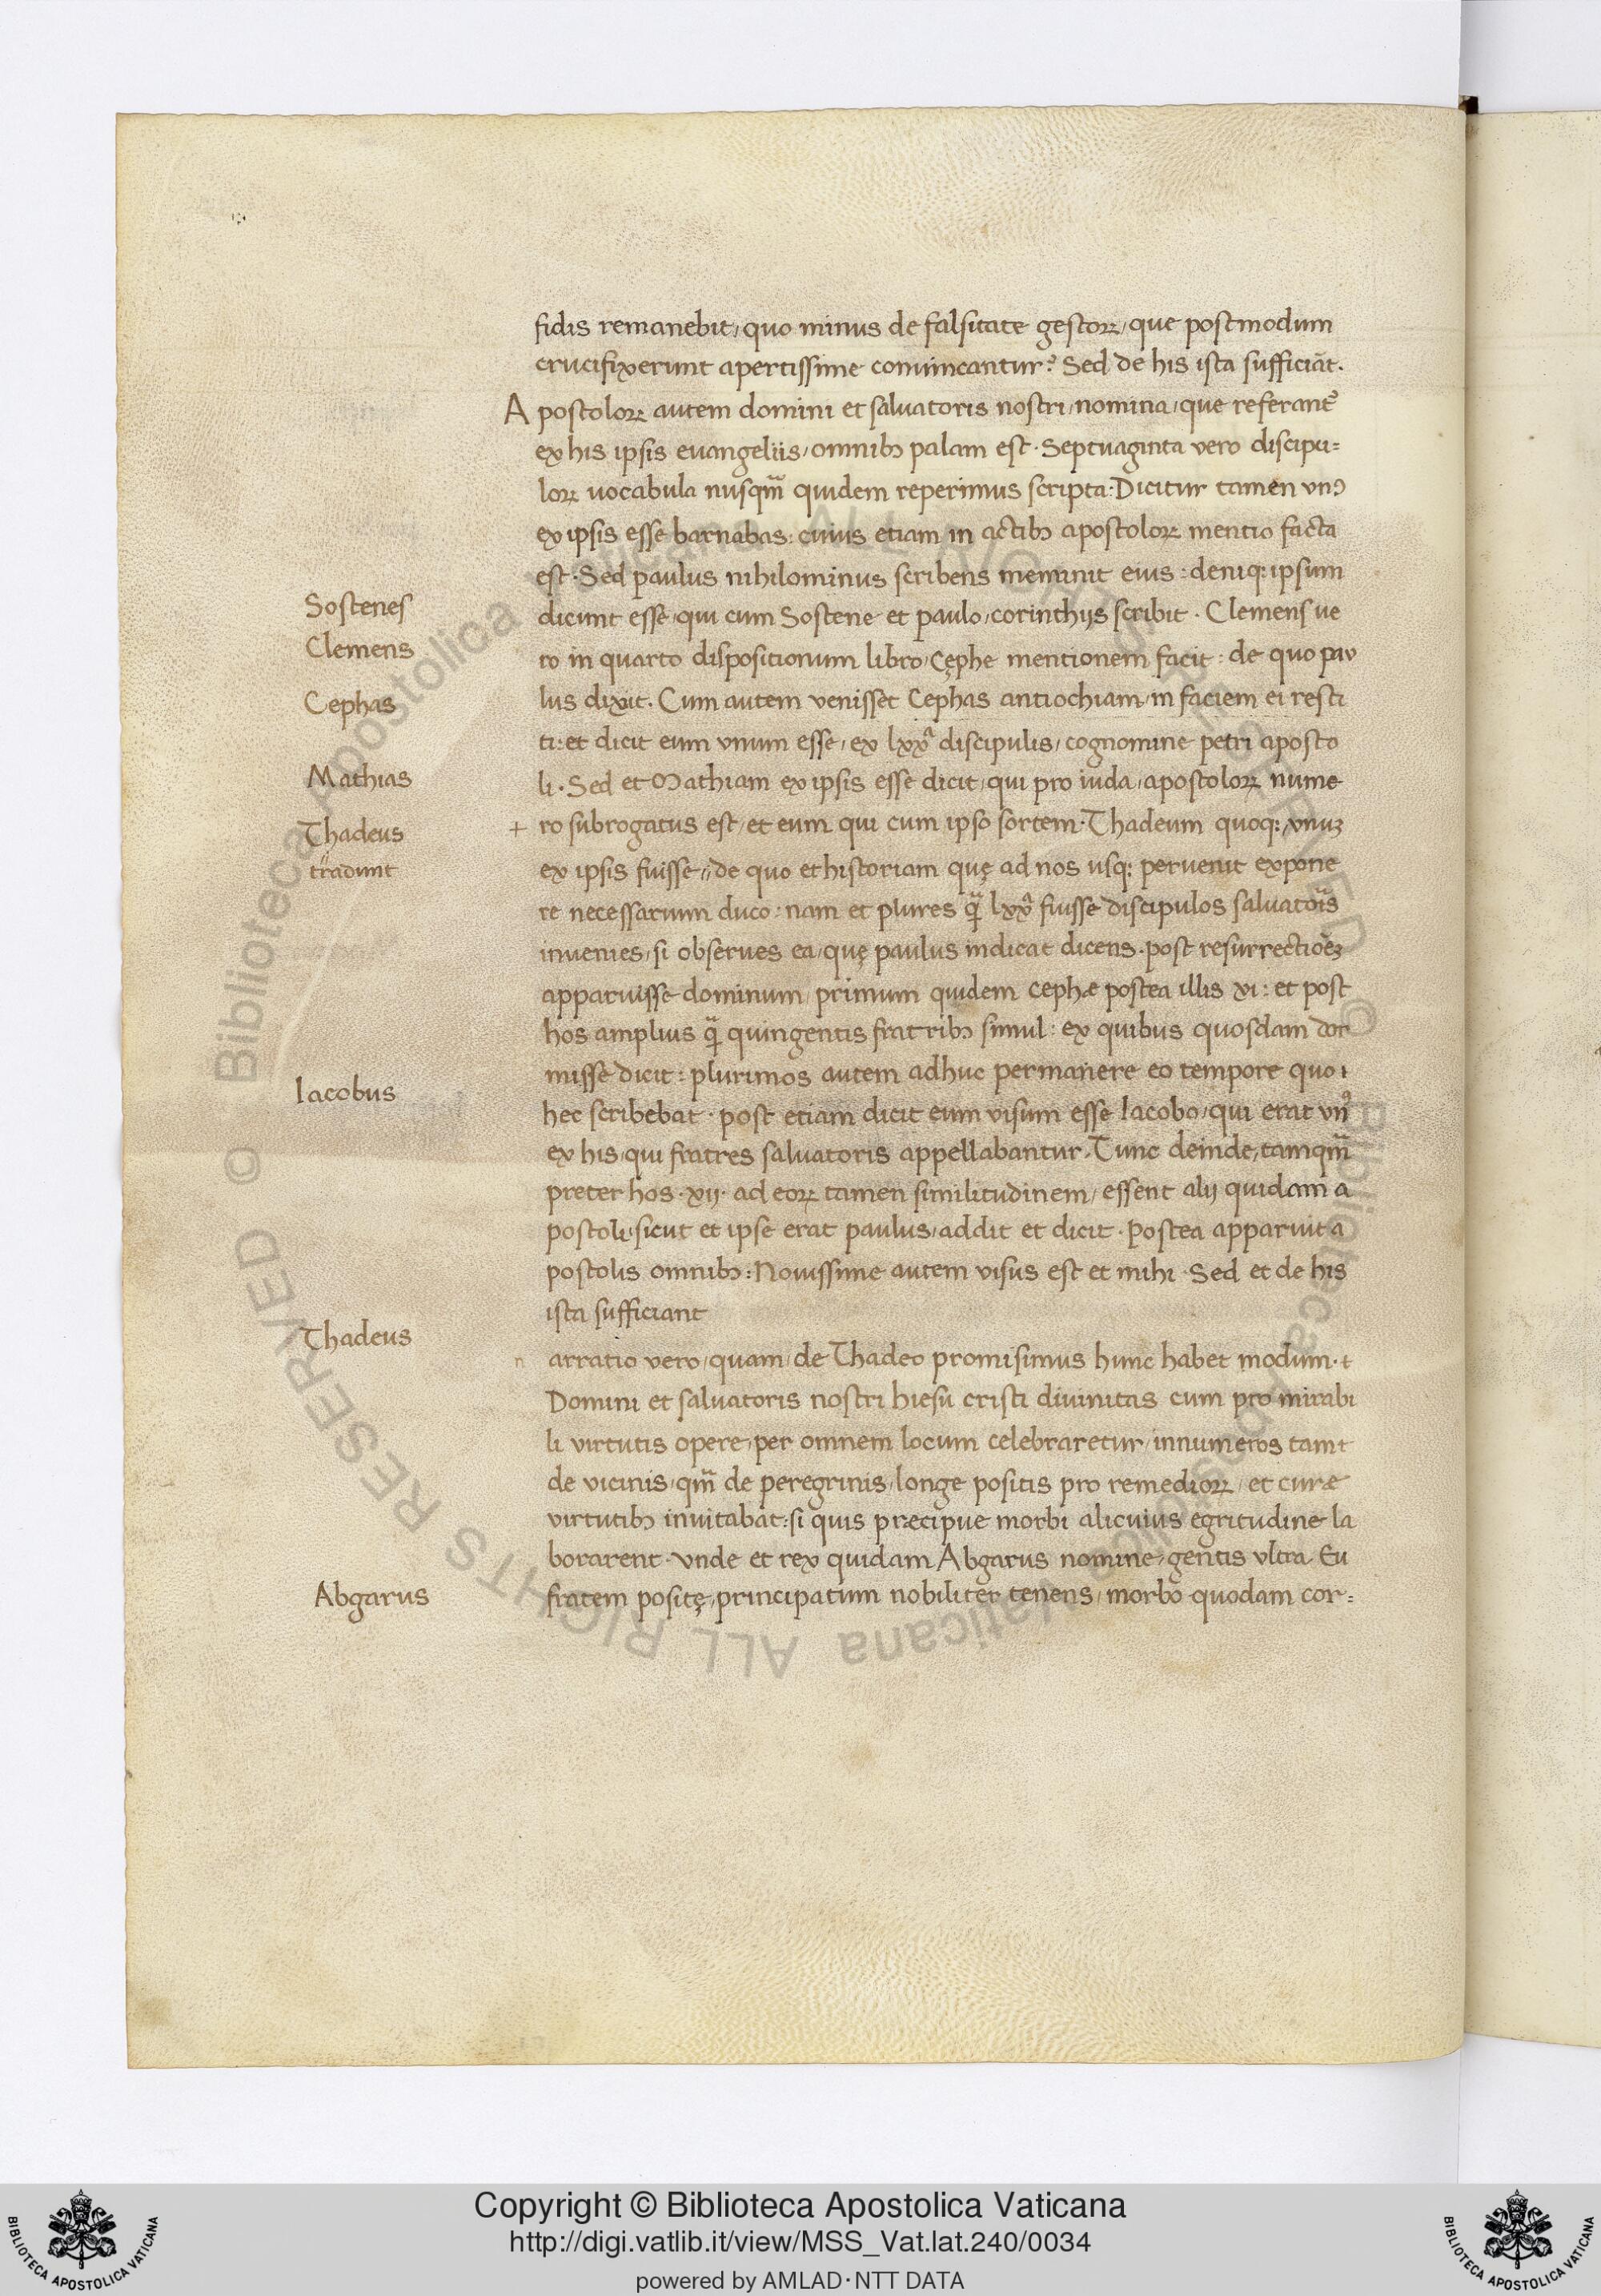 fidis remanebit, quo minus de falsitate gestoꝝ, que postmodum
crucifixerunt apertissime conuincantur? Sed de his ista sufficiāt.
Apostoloꝝ autem domini et saluatoris nostri, nomina, que referant᷑
ex his ipsis euangeliis, omnibꝫ palam est. Septuaginta vero discipu=
loꝝ uocabula nusqm̄ quidem reperimus scripta: Dicitur tamen vnꝰ
ex ipsis esse barnabas: cuius etiam in actibꝫ apostoloꝝ mentio facta
est. Sed paulus nihilominus scribens meminit eius: deniqꝫ ipsum
Sostenes
dicunt esse, qui cum Sostene et paulo, corinthijs scribit. Clemens ue
Clemens
ro in quarto dispositionum libro, Cęphe mentionem facit: de quo pau
Cephas
lus dixit. Cum autem venisset Cephas antiochiam, in faciem ei resti
ti: et dicit eum vnum esse, ex lxxᵃ discipulis, cognomine petri aposto
Mathias
li. Sed et Mathiam ex ipsis esse dicit, qui pro iuda, apostoloꝝ nume
Thadeus
+ ro subrogatus est, et eum qui cum ipso sortem. Thadeum quoqꝫ, vnuꝫ
tradunt
ex ipsis fuisse, de quo et historiam quę ad nos usqꝫ peruenit expone
re necessarium duco: nam et plures q̄ lxxᵃ fuisse discipulos saluatoris
inuenies, si obserues ea, quę paulus indicat dicens. post resurrectiōeꝫ
apparuisse dominum, primum quidem cephæ postea illis xi: et post
hos amplius q̄ quingentis fratribꝫ simul: ex quibus quosdam dor
misse dicit: plurimos autem adhuc permanere eo tempore quo
Iacobus
hec scribebat. post etiam dicit eum visum esse Iacobo, qui erat vnꝰ
ex his, qui fratres saluatoris appellabantur. Tunc deinde, tamqm̄
preter hos .xij. ad eoꝝ tamen similitudinem, essent alij quidam a
postoli, sicut et ipse erat paulus, addit et dicit. Postea apparuit a
postolis omnibꝫ: Nouissime autem visus est et mihi. Sed et de his
ista sufficiant
Thadeus
narratio vero, quam, de Thadeo promisimus hunc habet modum.
Domini et saluatoris nostri hiesu cristi diuinitas cum pro mirabi
li virtutis opere, per omnem locum celebraretur, innumeros tam
de vicinis, qm̄ de peregrinis, longe positis pro remedioꝝ, et curæ
virtutibꝫ inuitabat: si quis præcipue morbi alicuius egritudine la
borarent. vnde et rex quidam Abgarus nomine, gentis vltra Eu
Abgarus
fratem positę, principatum nobiliter tenens, morbo quodam cor=
© Biblioteca Apostolica Vaticana ALL RIGHTS RESERVED © Biblioteca Apostolica Vaticana ALL RIGHTS RESERVED
BIBLIOTECA APOSTOLICA VATICANA
Copyright © Biblioteca Apostolica Vaticana
http://digi.vatlib.it/view/MSS_Vat.lat.240/0034
powered by AMLAD·NTT DATA
BIBLIOTECA APOSTOLICA VATICANA